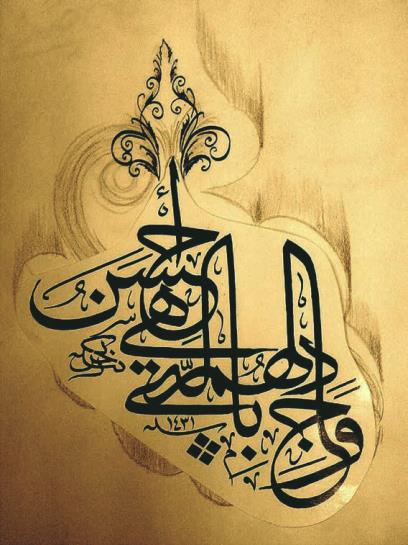 وجادلهم
بالتي هي
أحسن
سنة ١٤٣١